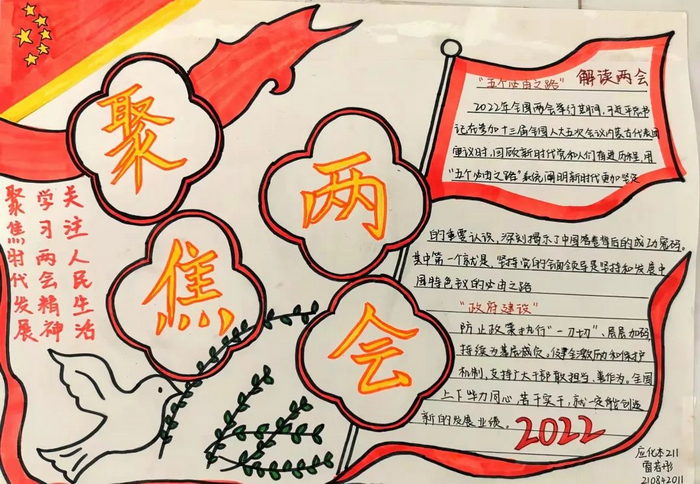 聚焦
两会
关注人民生活
学习两会精神
聚焦时代发展
解读两会
"五个必由之路"
2022年全国两会举行期间，习近平总书
记在参加十三届全国人大五次会议内蒙古代表团
审议时，回顾新时代党和人们奋进历程，用
"五个必由之路"系统阐明新时代更加坚定
的重要认识，深刻揭示了中国答卷背后的成功密码。
其中第一个就是 坚持党的全面领导是坚持和发展中
国特色的必由之路
"政府建设"
防止政策执行"一刀切"、层层加码
持续为基层减负。健全激励和保护
机制，支持广大干部敢担当、善作为。全国
上下勠力同心 苦干实干，就一定能创造
新的发展业绩。
2022
应化本211
雷若彤
210842011